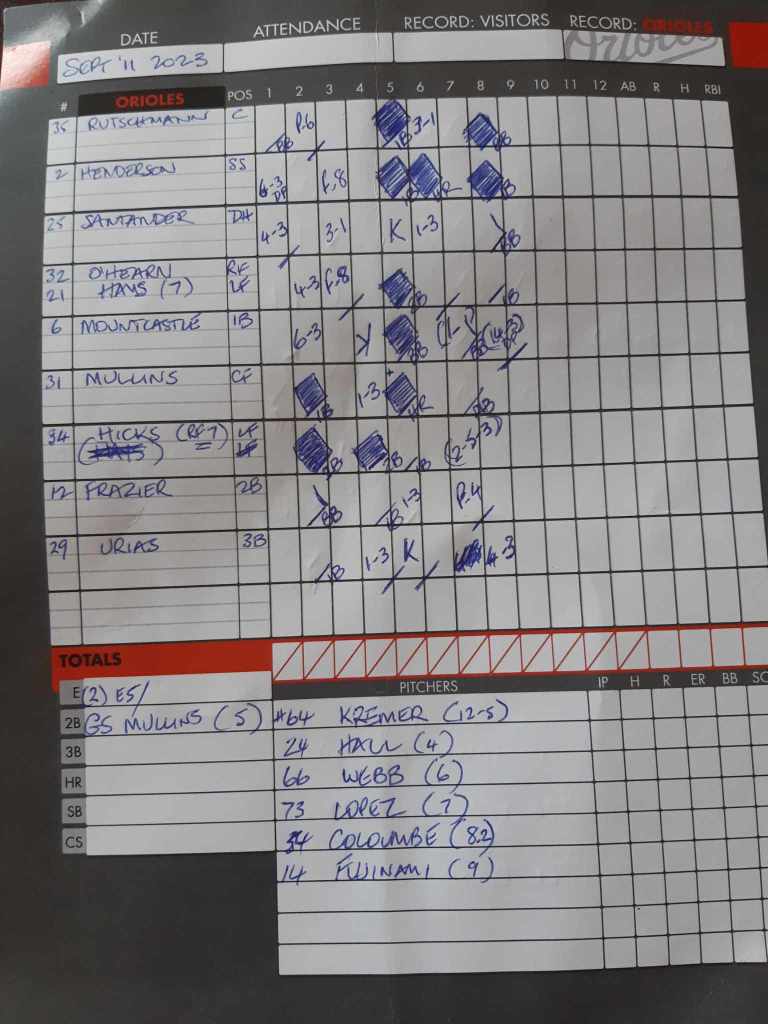 DATE ATTENDANCE RECORD: VISITORS RECORD: ORIOLES
SEPT '11 2023 Orioles
# ORIOLES POS 1 2 3 4 5 6 7 8 9 10 11 12 AB R H RBI
35 RUTSCHMANN C BB P.6 1B 3-1 BB
2 HENDERSON SS 6-3 DP F.8 1B HR 1B
25 SANTANDER DH 4-3 3-1 K 1-3 BB
32 O'HEARN RF
21 HAYS (7) LF 4-3 F.8 1B 1B
6 MOUNTCASTLE 1B 6-3 K BB
31 MULLINS CF 1B 1-3 HR BB
34 HICKS (RF-7) LF 1B (2-5-3)
12 FRAZIER 2B BB 1B 1-3 P.4
29 URIAS 3B 1B 1-3 K 4-3
TOTALS
PITCHERS IP H R ER BB SO
E (2) E5/
2B GS MULLINS (5)
3B
HR
SB
CS
#64 KREMER (12-5)
24 HALL (4)
66 WEBB (6)
73 LOPEZ (7)
54 COLOUMBE (8.2)
14 FUJINAMI (9)